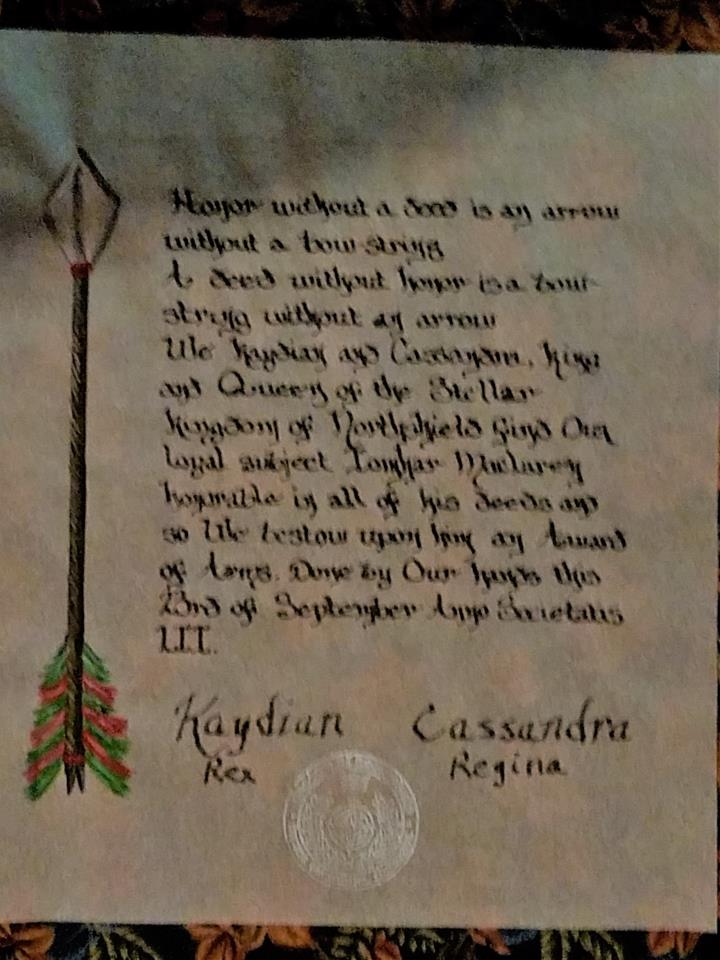 Honor without a deed is an arrow
without a bow string
A deed without honor is a bow-
string without an arrow
We Kaydian and Cassandra, King
and Queen of the Stellar
Kingdom of Northshield find Our
loyal subject
honorable in all of his deeds and
so We bestow upon him an Award
of Arms. Done by Our hands this
23rd of September Anno Societatis
LII.
Kaydian Cassandra
Rex Regina